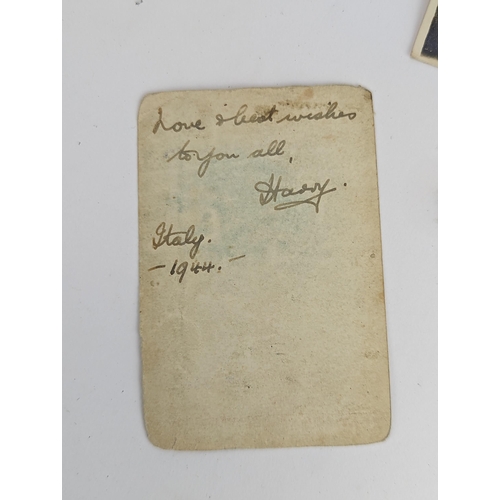 Love & best wishes
to you all,
Harry.
Italy.
- 1944. -